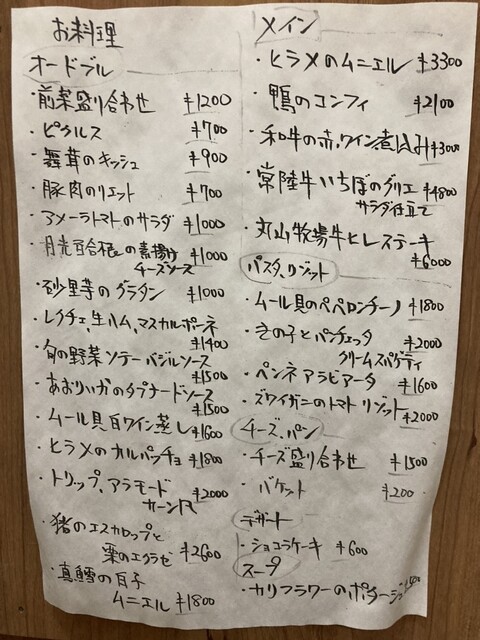 お料理
オードブル
・前菜盛り合わせ ¥1200
・ピクルス ¥700
・舞茸のキッシュ ¥900
・豚肉のリエット ¥700
・アメーラトマトのサラダ ¥1000
・月光百合根の素揚げ ¥1000
チーズソース
・砂里芋のグラタン ¥1000
・レクチェ、生ハム、マスカルポーネ
¥1400
・旬の野菜ソテーバジルソース
¥1500
・あおりいかのタプナードソース
¥1500
・ムール貝白ワイン蒸し ¥1600
・ヒラメのカルパッチョ ¥1800
・トリップ、アラモード ¥2000
カーン風
・猪のエスカロップと
栗のエクラゼ ¥2600
・真鱈の白子
ムニエル ¥1800
メイン
・ヒラメのムニエル ¥3300
・鴨のコンフィ ¥2100
・和牛の赤ワイン煮込み ¥3000
・常陸牛いちぼのグリエ ¥4800
サラダ仕立て
・丸山牧場牛ヒレステーキ
¥6000
パスタ、リゾット
・ムール貝のペペロンチーノ ¥1800
・きの子とパンチェッタ ¥2000
クリームスパゲティ
・ペンネアラビアータ ¥1600
・ズワイガニのトマトリゾット ¥2000
チーズ、パン
・チーズ盛り合わせ ¥1500
・バケット ¥200
デザート
・ショコラケーキ ¥600
スープ
・カリフラワーのポタージュ